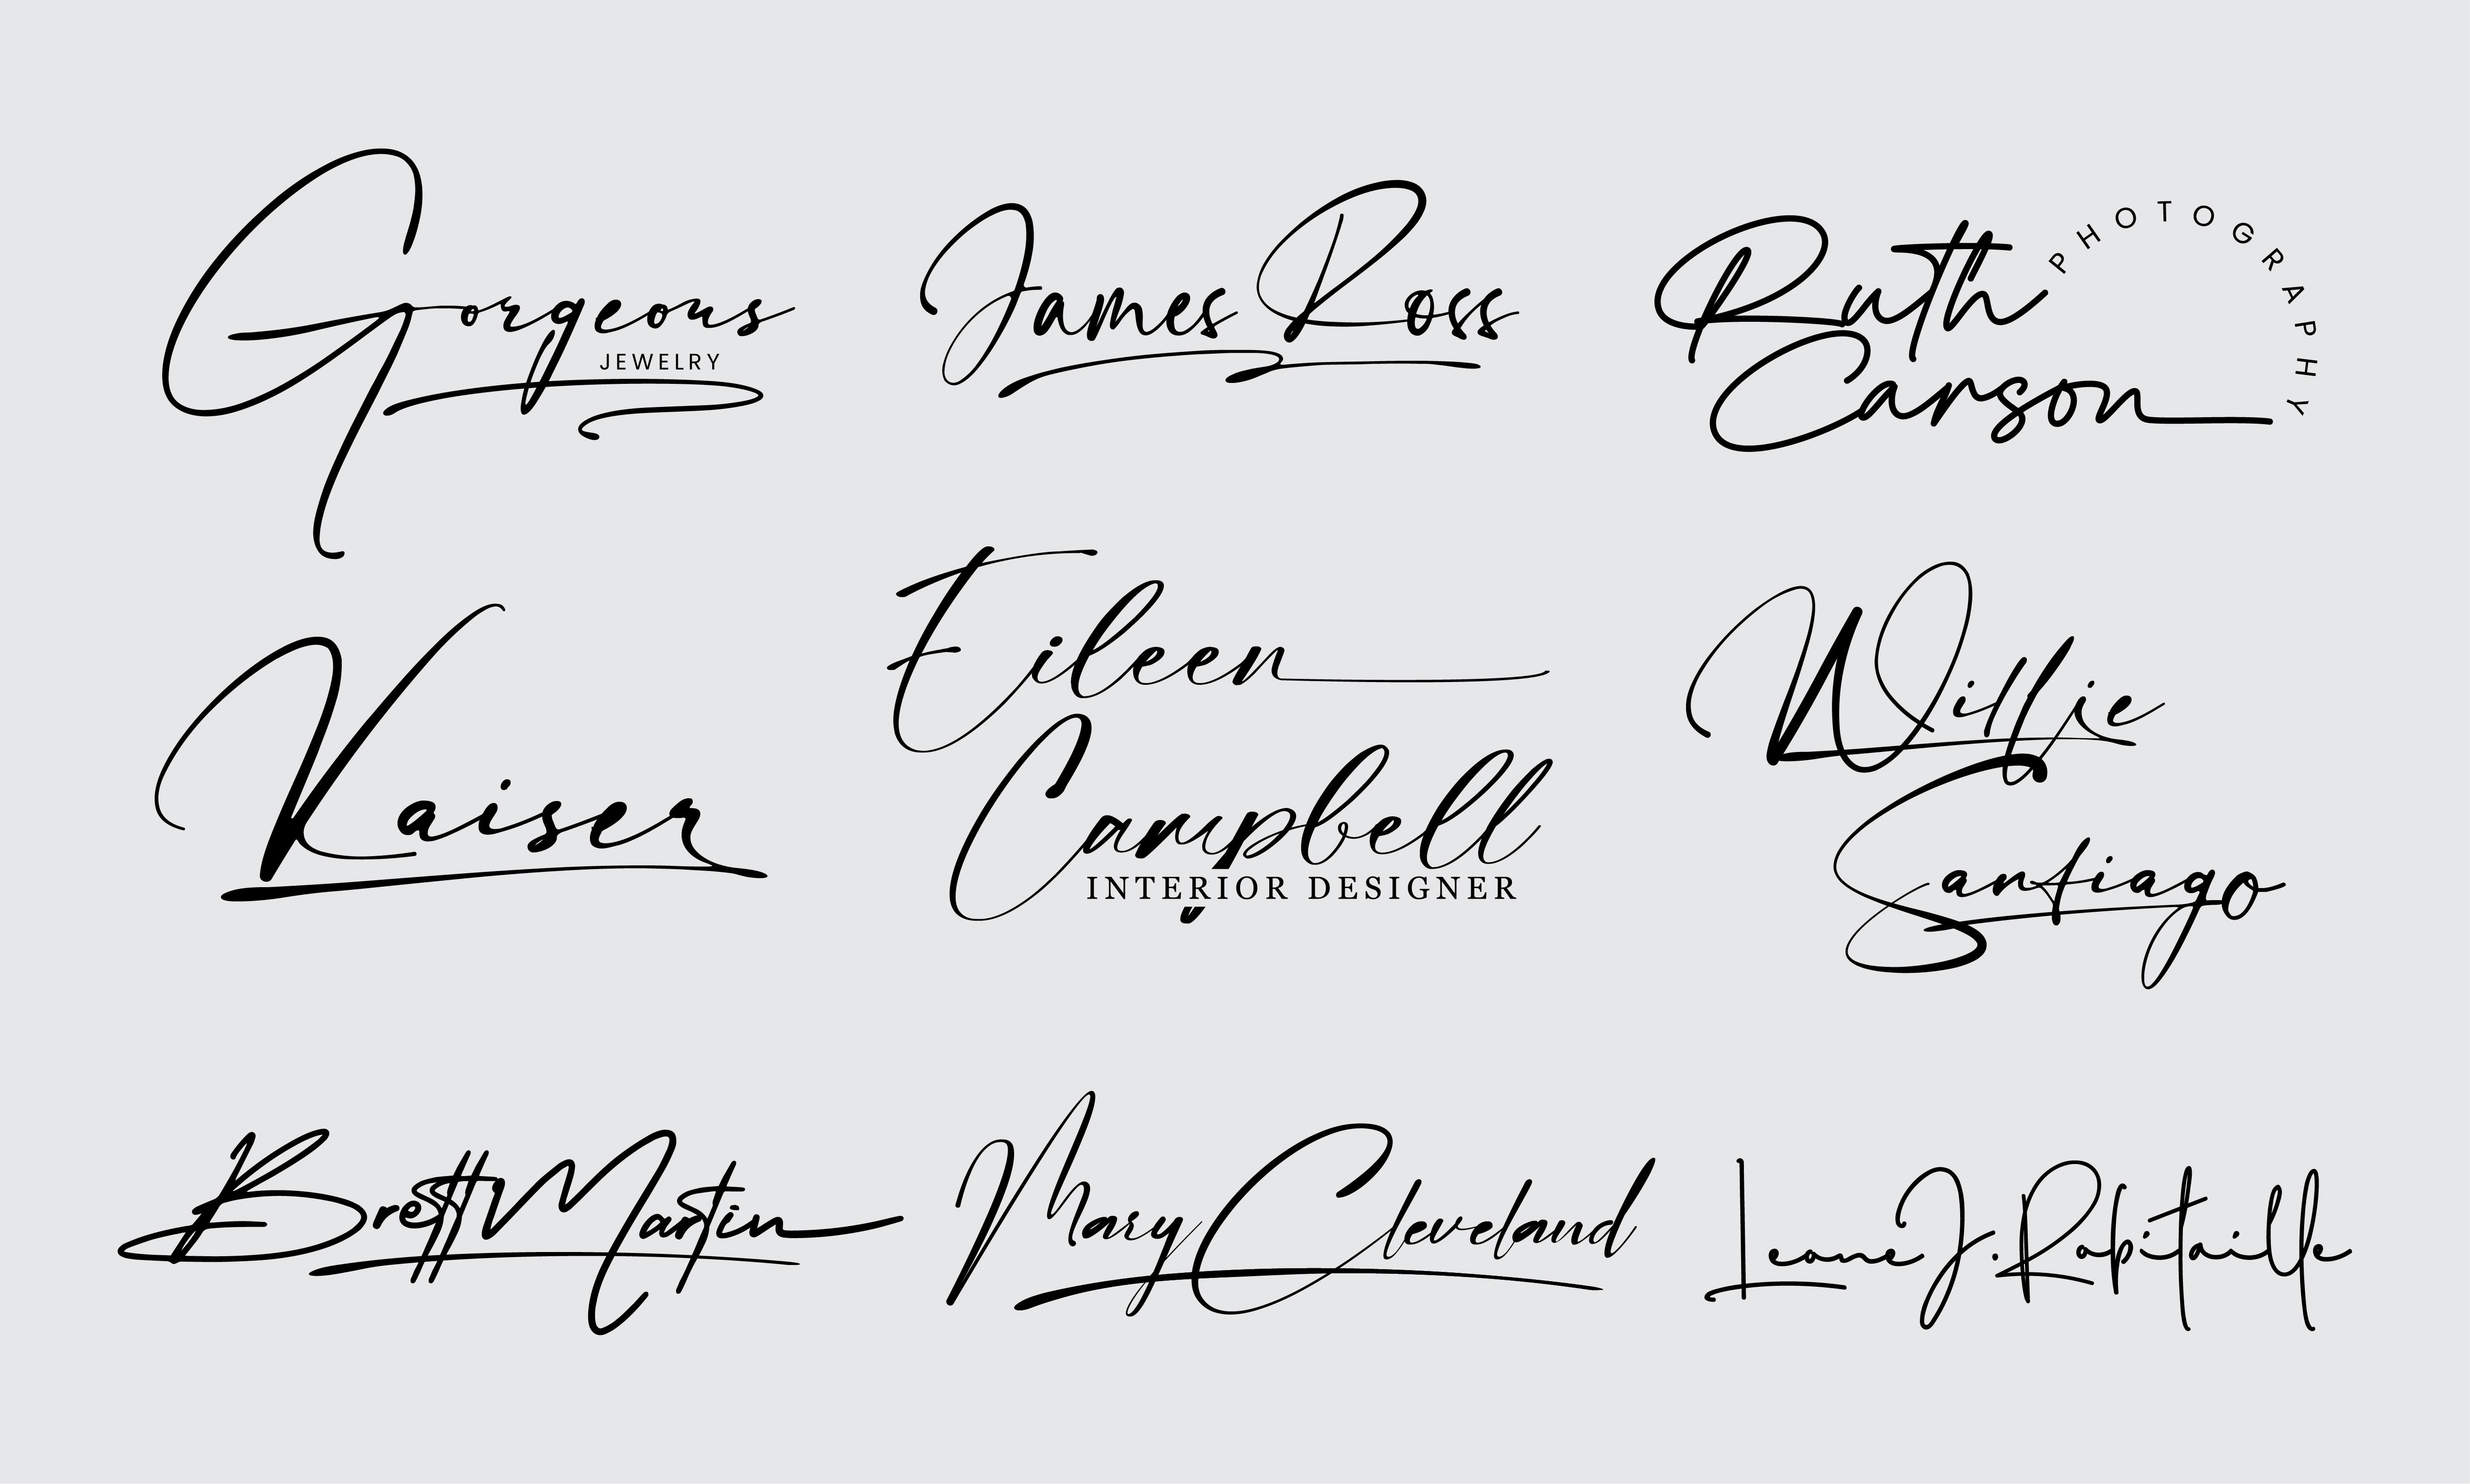 Gorgeous
JEWELRY
James Ross
Ruth
Carson
PHOTOGRAPHY
Kaiser
Eileen
Campbell
INTERIOR DESIGNER
Willie
Santiago
Brett Martin
Mary Cleveland
Leanne J. Robitaille